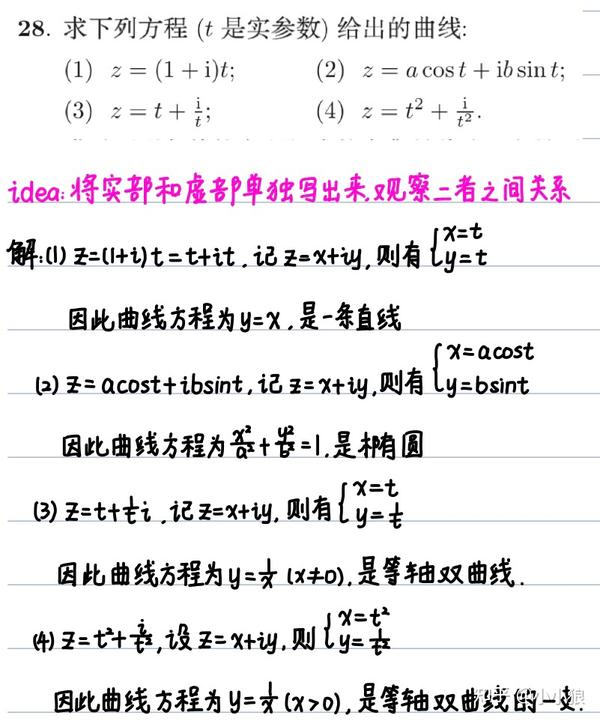 28. 求下列方程 (t 是实参数) 给出的曲线:
(1) z = (1 + i)t; (2) z = a cos t + ib sin t;
(3) z = t + i/t; (4) z = t² + i/t².
idea: 将实部和虚部单独写出来,观察二者之间关系
解:(1) z=(1+i)t=t+it,记z=x+iy,则有{x=t y=t
因此曲线方程为y=x,是一条直线
(2) z=acost+ibsint,记z=x+iy,则有{x=acost y=bsint
因此曲线方程为x²/a²+y²/b²=1,是椭圆
(3) z=t+1/t i,记z=x+iy,则有{x=t y=1/t
因此曲线方程为y=1/x (x≠0),是等轴双曲线.
(4) z=t²+i/t²,设z=x+iy,则{x=t² y=1/t²
因此曲线方程为y=1/x (x>0),是等轴双曲线的一支.
知乎 @小小狼